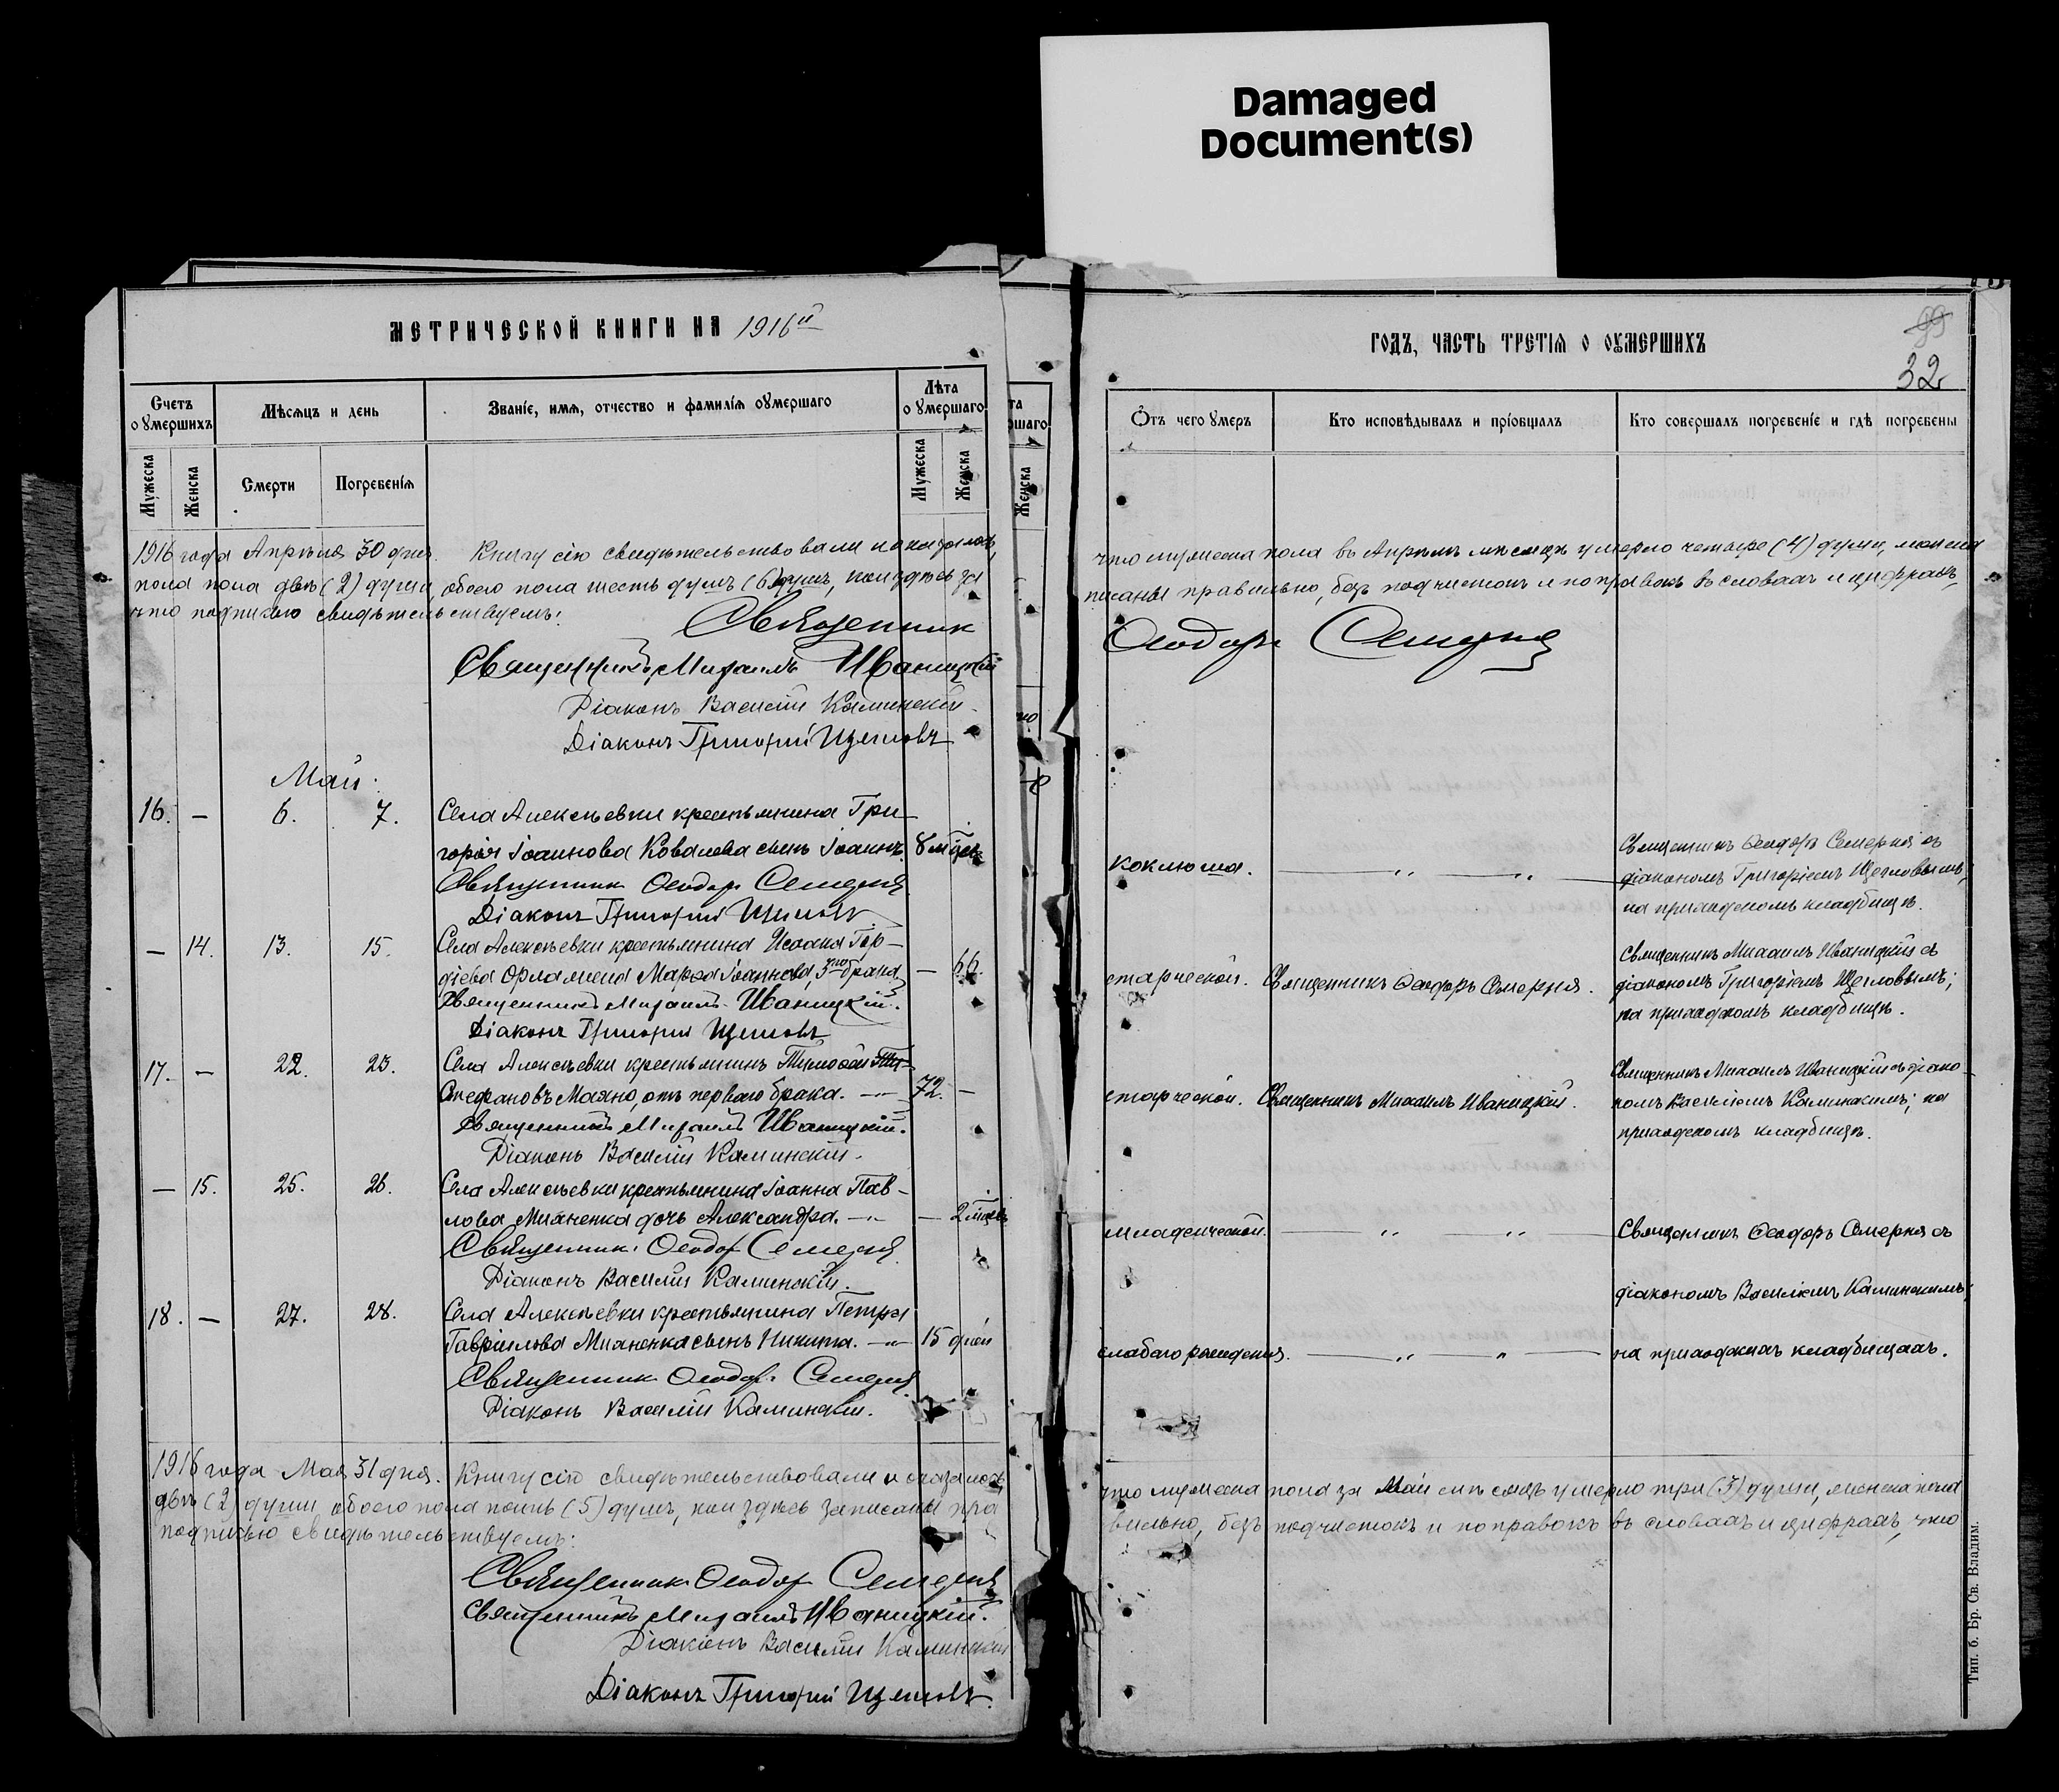 Damaged
Document(s)
МЕТРИЧЕСКОЙ КНИГИ НА 1916й
Счетъ оумершихъ
Мѣсяцъ и день
Званіе, имя, отчество и фамилія оумершаго
Лѣта оумершаго
Мужеска
Женска
Смерти
Погребенія
Мужеска
Женска
1916 года Апрѣля 30 дня. Книгу сію свидѣтельствовали и оказалось,
пола две (2) души, обоего пола шесть душъ (6) душъ, кои здѣсь за
что подписью свидѣтельствуемъ:
Священникъ
Священникъ Михаилъ Иваницкій
Діаконъ Василій Каминскій
Діаконъ Григорій Щегловъ
Май.
16. — 6. 7. Села Алексѣевки крестьянина Гри-
горія Іоаннова Ковалева сынъ Іоаннъ. 8 мѣс
Священникъ Ѳеодоръ Семерня
Діаконъ Григорій Щегловъ
— 14. 13. 15. Села Алексѣевки крестьянина Исаака Гор-
діева Іоаннова, 3го брака. — 66.
Священникъ Михаилъ Иваницкій.
Діаконъ Григорій Щегловъ
17. — 22. 23. Села Алексѣевки крестьянинъ Тимоѳей
Стефановъ Махно, отъ перваго брака. 72. —
Священникъ Михаилъ Иваницкій.
Діаконъ Василій Каминскій.
— 15. 25. 26. Села Алексѣевки крестьянина Іоанна Пав-
лова Михненка дочь Александра. — 2 мѣс
Священникъ Ѳеодоръ Семерня
Діаконъ Василій Каминскій.
18. — 27. 28. Села Алексѣевки крестьянина Петра
Гавріилова Михненка сынъ Никита. 15 дней
Священникъ Ѳеодоръ Семерня
Діаконъ Василій Каминскій.
1916 года Мая 31 дня. Книгу сію свидѣтельствовали и оказалось,
двѣ (2) души обоего пола пять (5) душъ, кои здѣсь записаны пра
подписью свидѣтельствуемъ:
Священникъ Ѳеодоръ Семерня
Священникъ Михаилъ Иваницкій.
Діаконъ Василій Каминскій
Діаконъ Григорій Щегловъ
та
ршаго
Женска
ГОДЪ, ЧАСТЬ ТРЕТІЯ О ОУМЕРШИХЪ
99
32
Отъ чего умеръ
Кто исповѣдывалъ и пріобщалъ
Кто совершалъ погребеніе и гдѣ погребены
что мужеска пола въ Апрѣлѣ мѣсяцѣ умерло четыре (4) души, женска
писаны правильно, безъ подчистокъ и поправокъ въ словахъ и цифрахъ,
Ѳеодоръ Семерня
коклюша.
Священникъ Ѳеодоръ Семерня съ
діакономъ Григоріемъ Щегловымъ,
на приходскомъ кладбищѣ.
старческой. Священникъ Ѳеодоръ Семерня.
Священникъ Михаилъ Иваницкій съ
діакономъ Григоріемъ Щегловымъ;
на приходскомъ кладбищѣ.
старческой. Священникъ Михаилъ Иваницкій.
Священникъ Михаилъ Иваницкій съ діако-
номъ Василіемъ Каминскимъ; на
приходскомъ кладбищѣ.
младенческой.
Священникъ Ѳеодоръ Семерня съ
діакономъ Василіемъ Каминскимъ,
слабаго рожденія.
на приходскихъ кладбищахъ.
что мужеска пола за Май мѣсяцъ умерло три (3) души, женска пола
вильно, безъ подчистокъ и поправокъ въ словахъ и цифрахъ, что
Тип. б. Бр. Св. Владим.